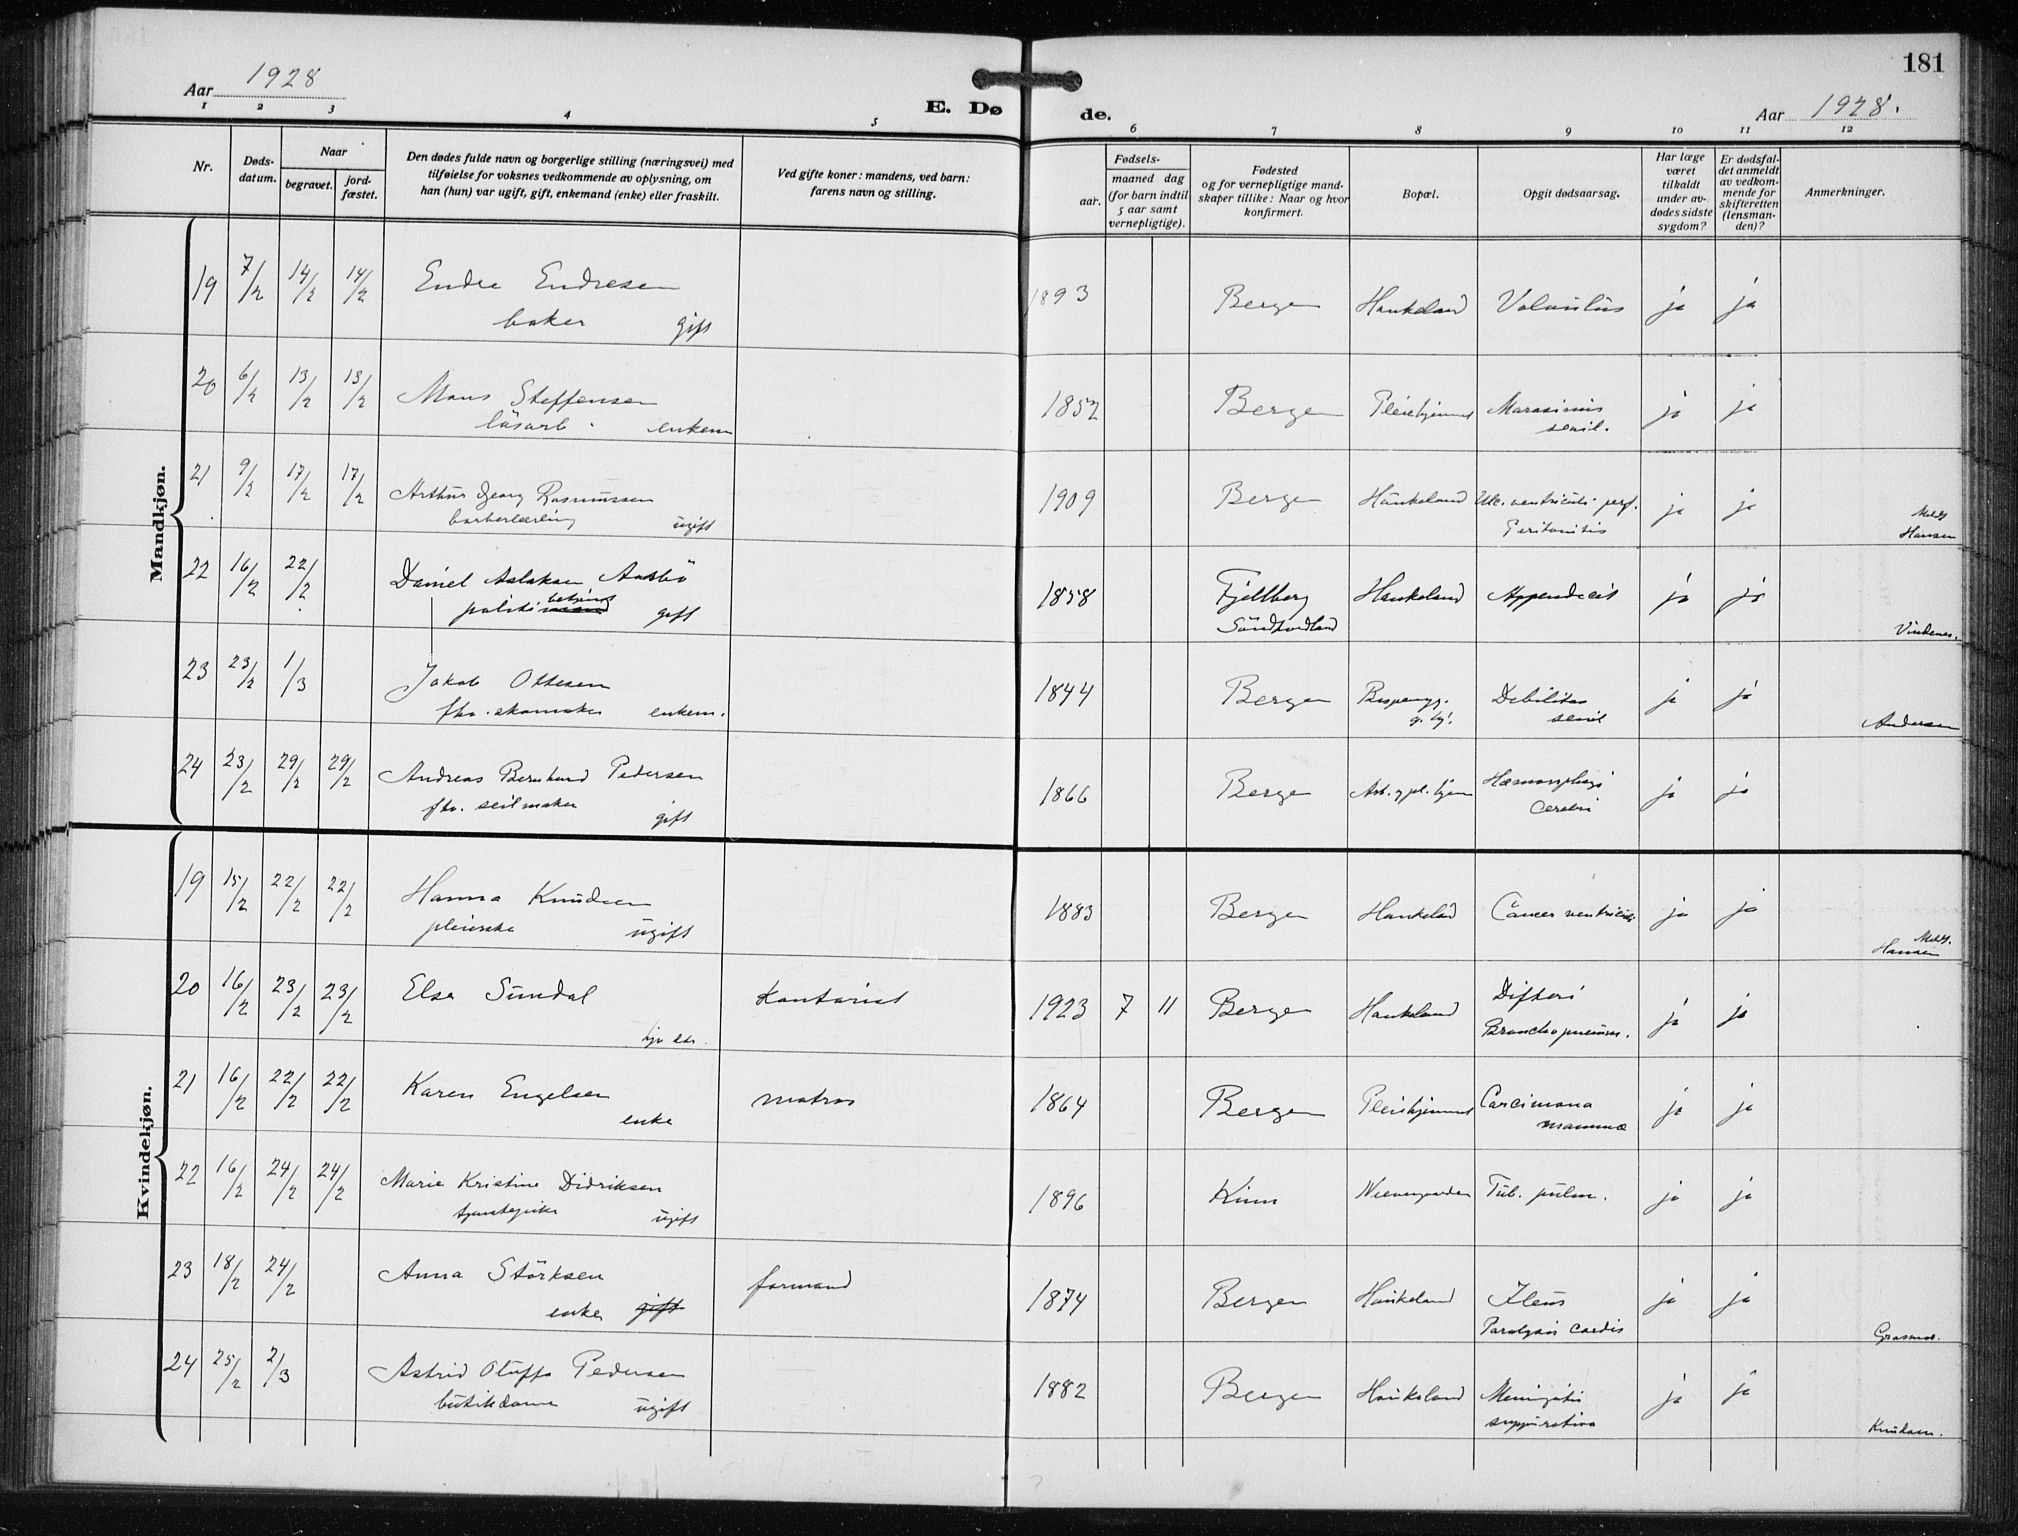 181
Aar 1928
E. Døde.
Aar 1928.
1 2 3 4 5 6 7 8 9 10 11 12
Nr.
Døds-
datum.
Naar
begravet.
jord-
fæstet.
Den dødes fulde navn og borgerlige stilling (næringsvei) med
tilføielse for voksnes vedkommende av oplysning, om
han (hun) var ugift, gift, enkemand (enke) eller fraskilt.
Ved gifte koner: mandens, ved barn:
farens navn og stilling.
Fødsels-
aar.
maaned dag
(for barn indtil
5 aar samt
vernepligtige).
Fødested
og for vernepligtige mand-
skaper tillike: Naar og hvor
konfirmert.
Bopæl.
Opgit dødsaarsag.
Har læge
været
tilkaldt
under av-
dødes sidste
sygdom?
Er dødsfal-
det anmeldt
av vedkom-
mende for
skifteretten
(lensman-
den)?
Anmerkninger.
Mandkjøn.
19 7/2 14/2 14/2 Endre Endresen 1893 Bergen Haukeland Volvulus ja ja
baker gift
20 6/2 13/2 13/2 Mons Steffensen 1852 Bergen Pleiehjemmet Marasmus ja ja
løsarb. enkem senil.
21 9/2 17/2 17/2 Arthur Georg Rasmussen 1909 Bergen Haukeland Ulc. ventriculi perf. ja ja
barberlærling ugift Peritonitis Hansen
22 16/2 22/2 Daniel Aslaksen 1858 Fjellberg Haukeland Appendicit ja ja
politimand betjent gift Søndhordland Vindenes.
23 23/2 1/3 Jakob Ottesen 1844 Bergen Debilitas ja ja
fhv. skomaker enkem. senil Andersen
24 23/2 29/2 29/2 Andreas Bernhard Pedersen 1866 Bergen Arb. g pl. hjem Hæmorrhagi ja ja
fhv. seilmaker gift cerebri
Kvindekjøn.
19 15/2 22/2 22/2 Hanna Knudsen 1883 Bergen Haukelad Cancer ventriculi ja ja
pleierske ugift Hansen
20 16/2 23/2 23/2 Else Sundal kontorist 1923 7 11 Bergen Haukeland Difteri ja ja
Bronchopneumon.
21 16/2 22/2 22/2 Karen Engelsen matros 1864 Bergen Pleiehjemmet Carcinoma ja ja
enke mammæ
22 16/2 24/2 24/2 Marie Kristine Didriksen 1896 Kinn Tub. pulm. ja ja
tjenestepike ugift
23 18/2 24/2 Anna Størksen formand 1874 Bergen Haukeland Ileus ja ja
enke gift Paralysis cordis
24 25/2 2/3 Astrid Oluffa Pedersen 1882 Bergen Haukeland Meningitis ja ja
butikdame ugift suppurativa Knudsen.